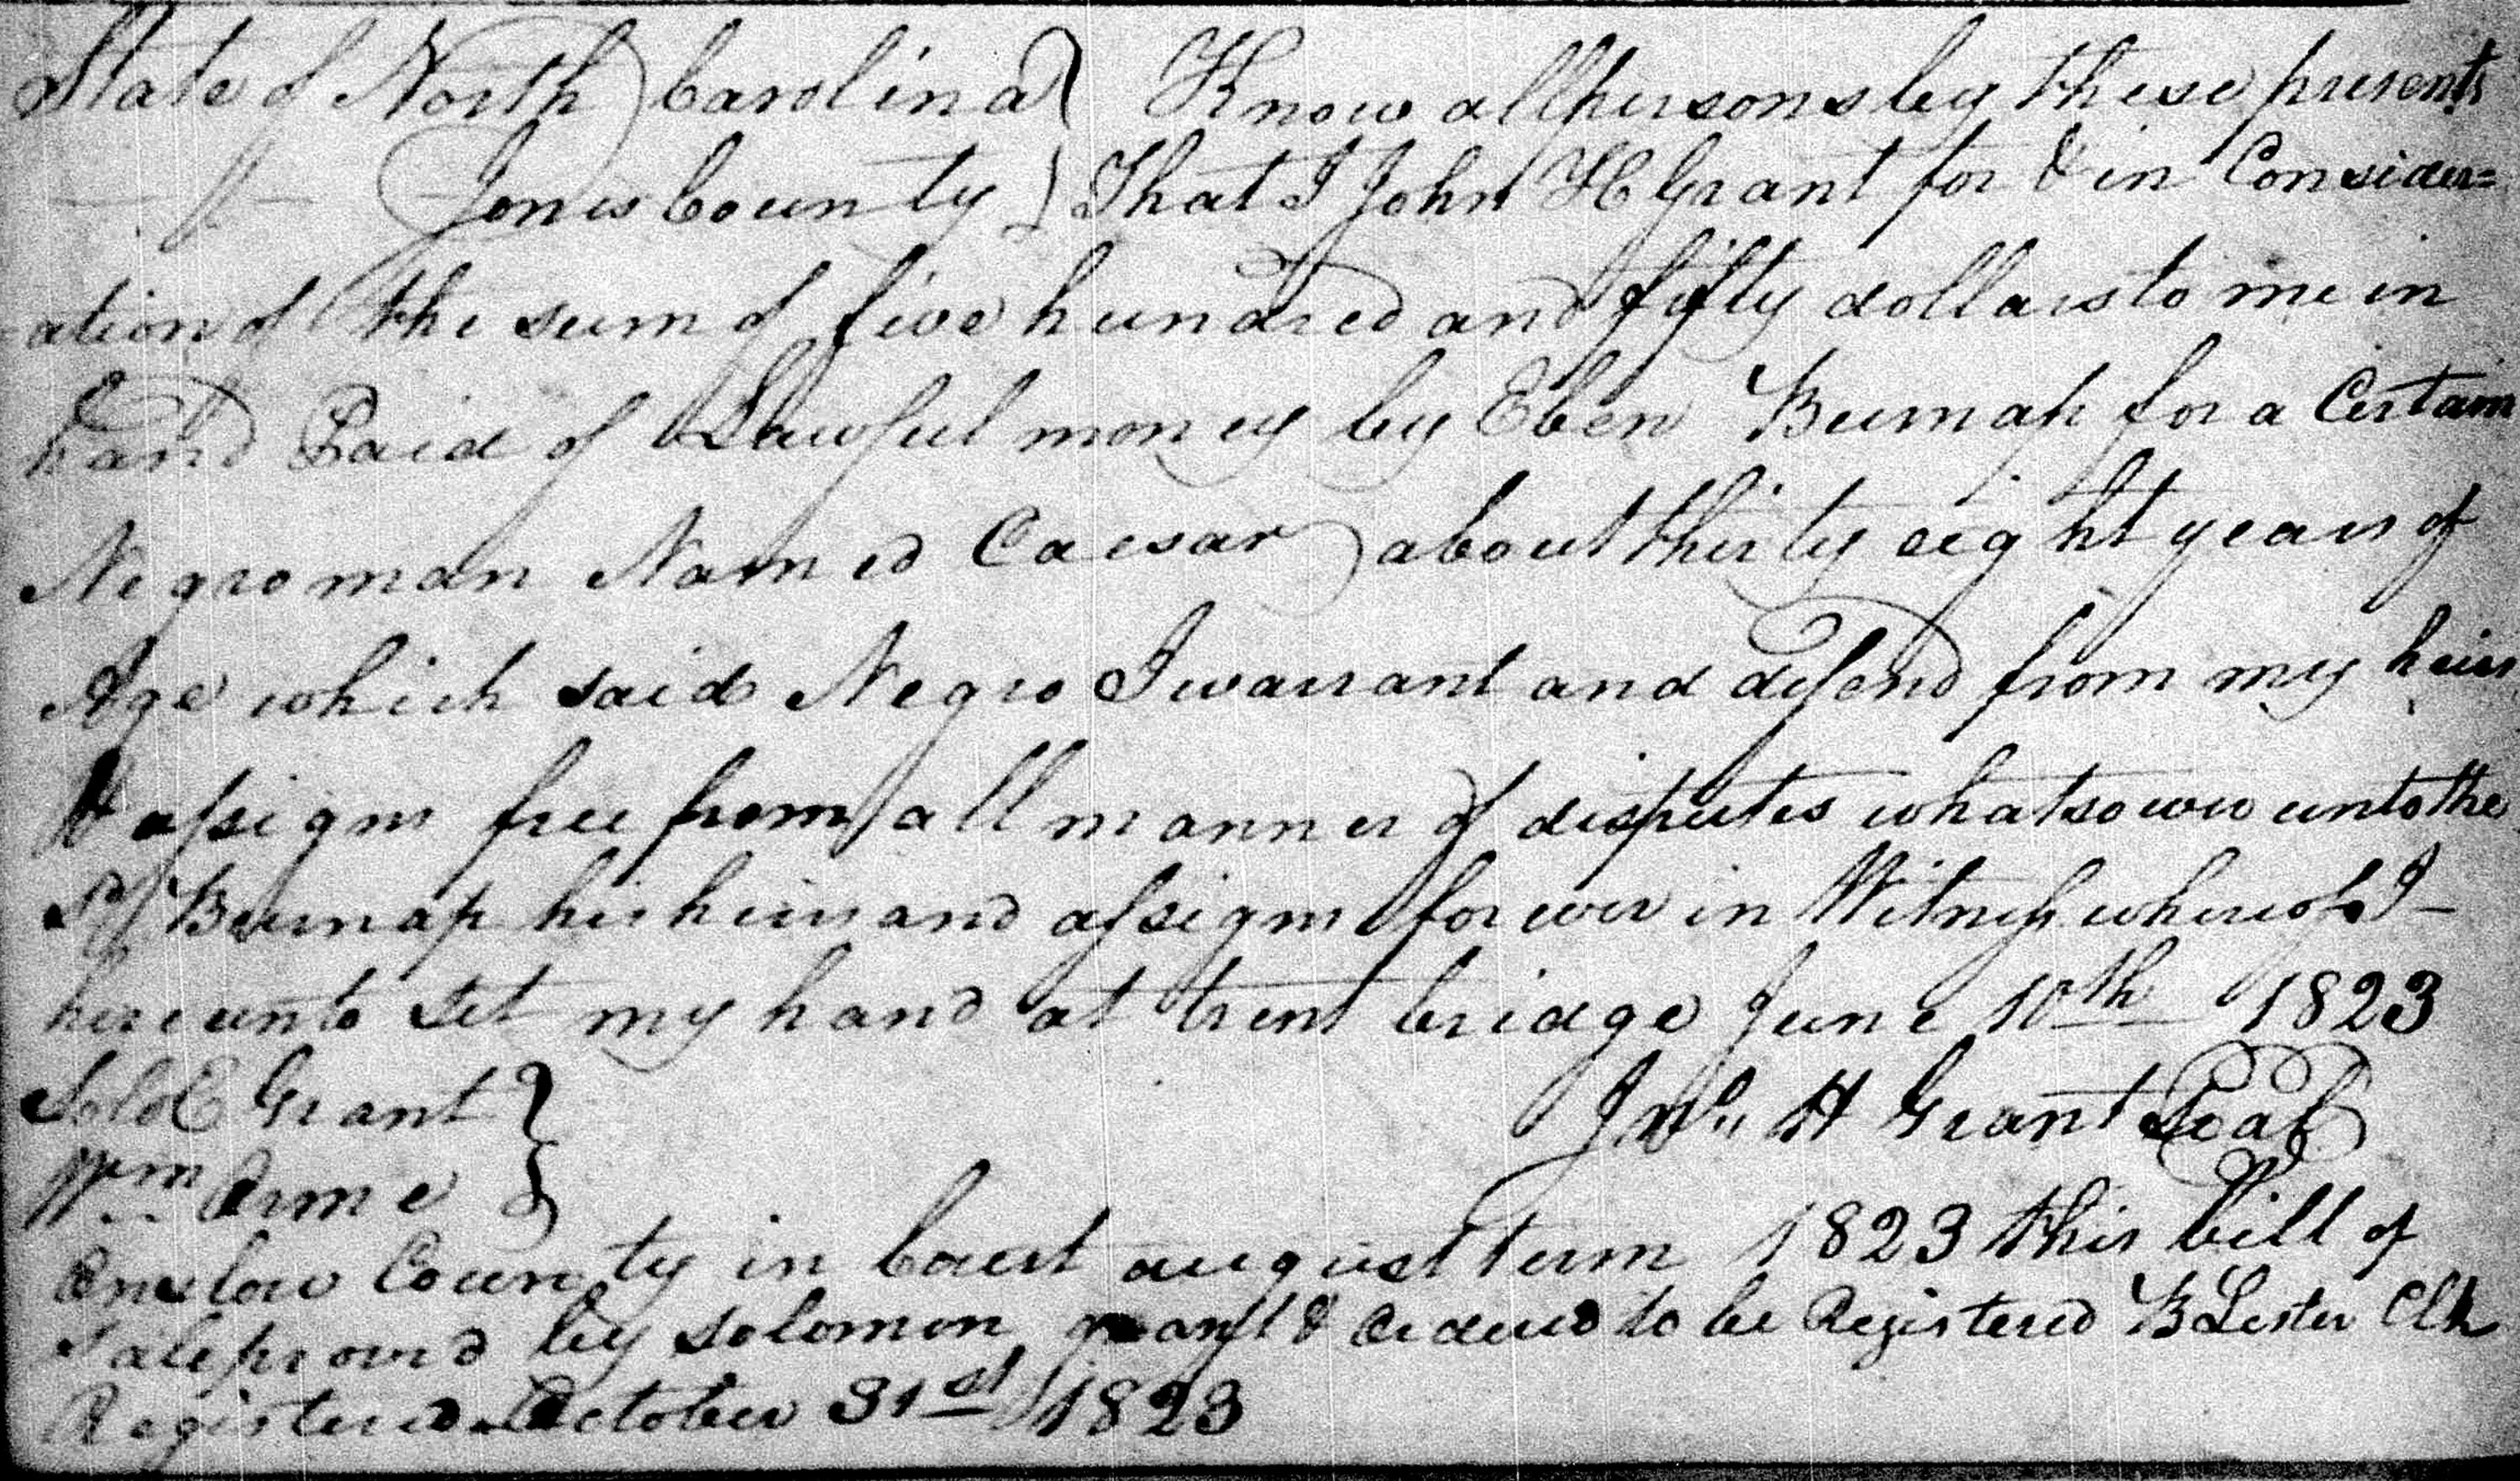 State of North Carolina } Know all persons by these presents
Jones County } That I John H Grant for & in Consider=
ation of the sum of five hundred and fifty dollars to me in
hand Paid of Lawful money by Eben Burnap for a Certain
Negro man Named Caesar about thirty eight years of
Age which said Negro I warrant and defend from my heirs
& assigns free from all manner of disputes whatsoever unto the
sd Burnap his heirs and assigns for ever in Witness whereof I
hereunto set my hand at trent bridge June 10th 1823
Solo E Grant } Jno. H Grant Seal
Wm Orme }
Onslow County in Court august term 1823 this bill of
Sale provd by solomon grant & ordered to be Registered B Lester Clk
Registered October 31st 1823